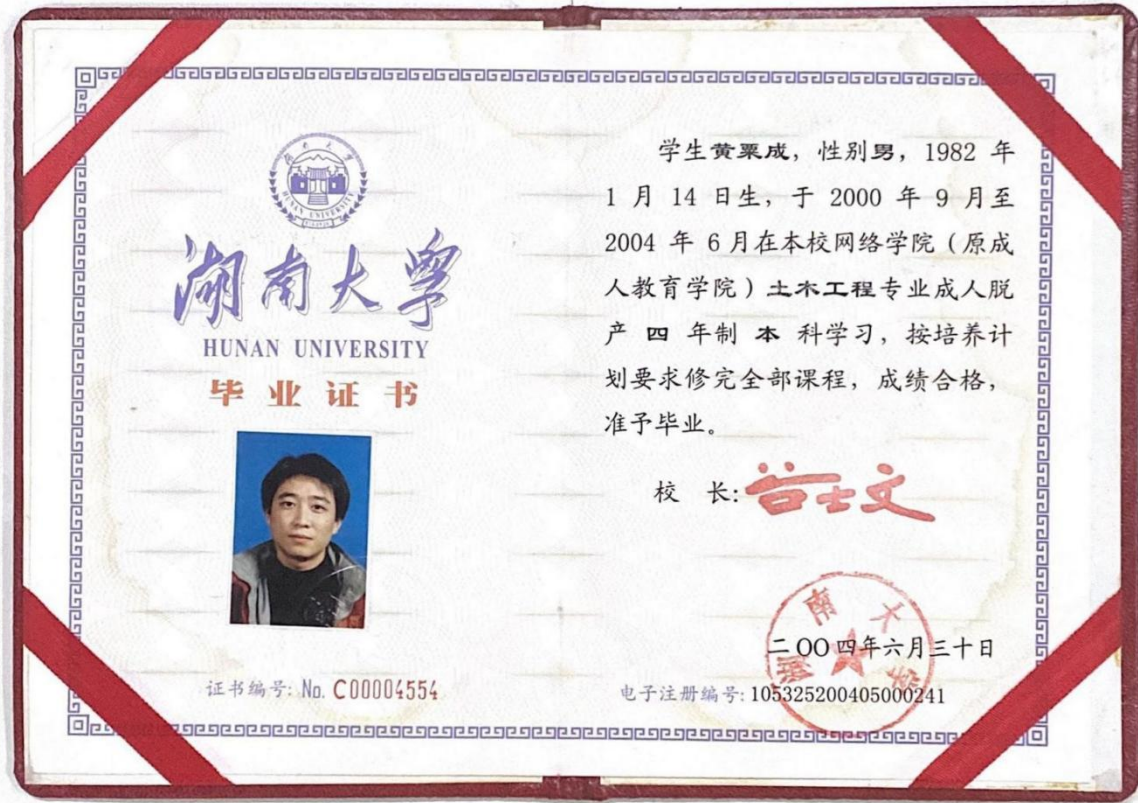 湖南大学
HUNAN UNIVERSITY
湖南大学
HUNAN UNIVERSITY
毕业证书
证书编号: No. C00004554
学生黄栗成，性别男，1982 年
1 月 14 日生，于 2000 年 9 月至
2004 年 6 月在本校网络学院（原成
人教育学院）土木工程专业成人脱
产 四 年制 本 科学习，按培养计
划要求修完全部课程，成绩合格，
准予毕业。
校 长: 谷士文
湖南大学
二〇〇四年六月三十日
电子注册编号: 105325200405000241